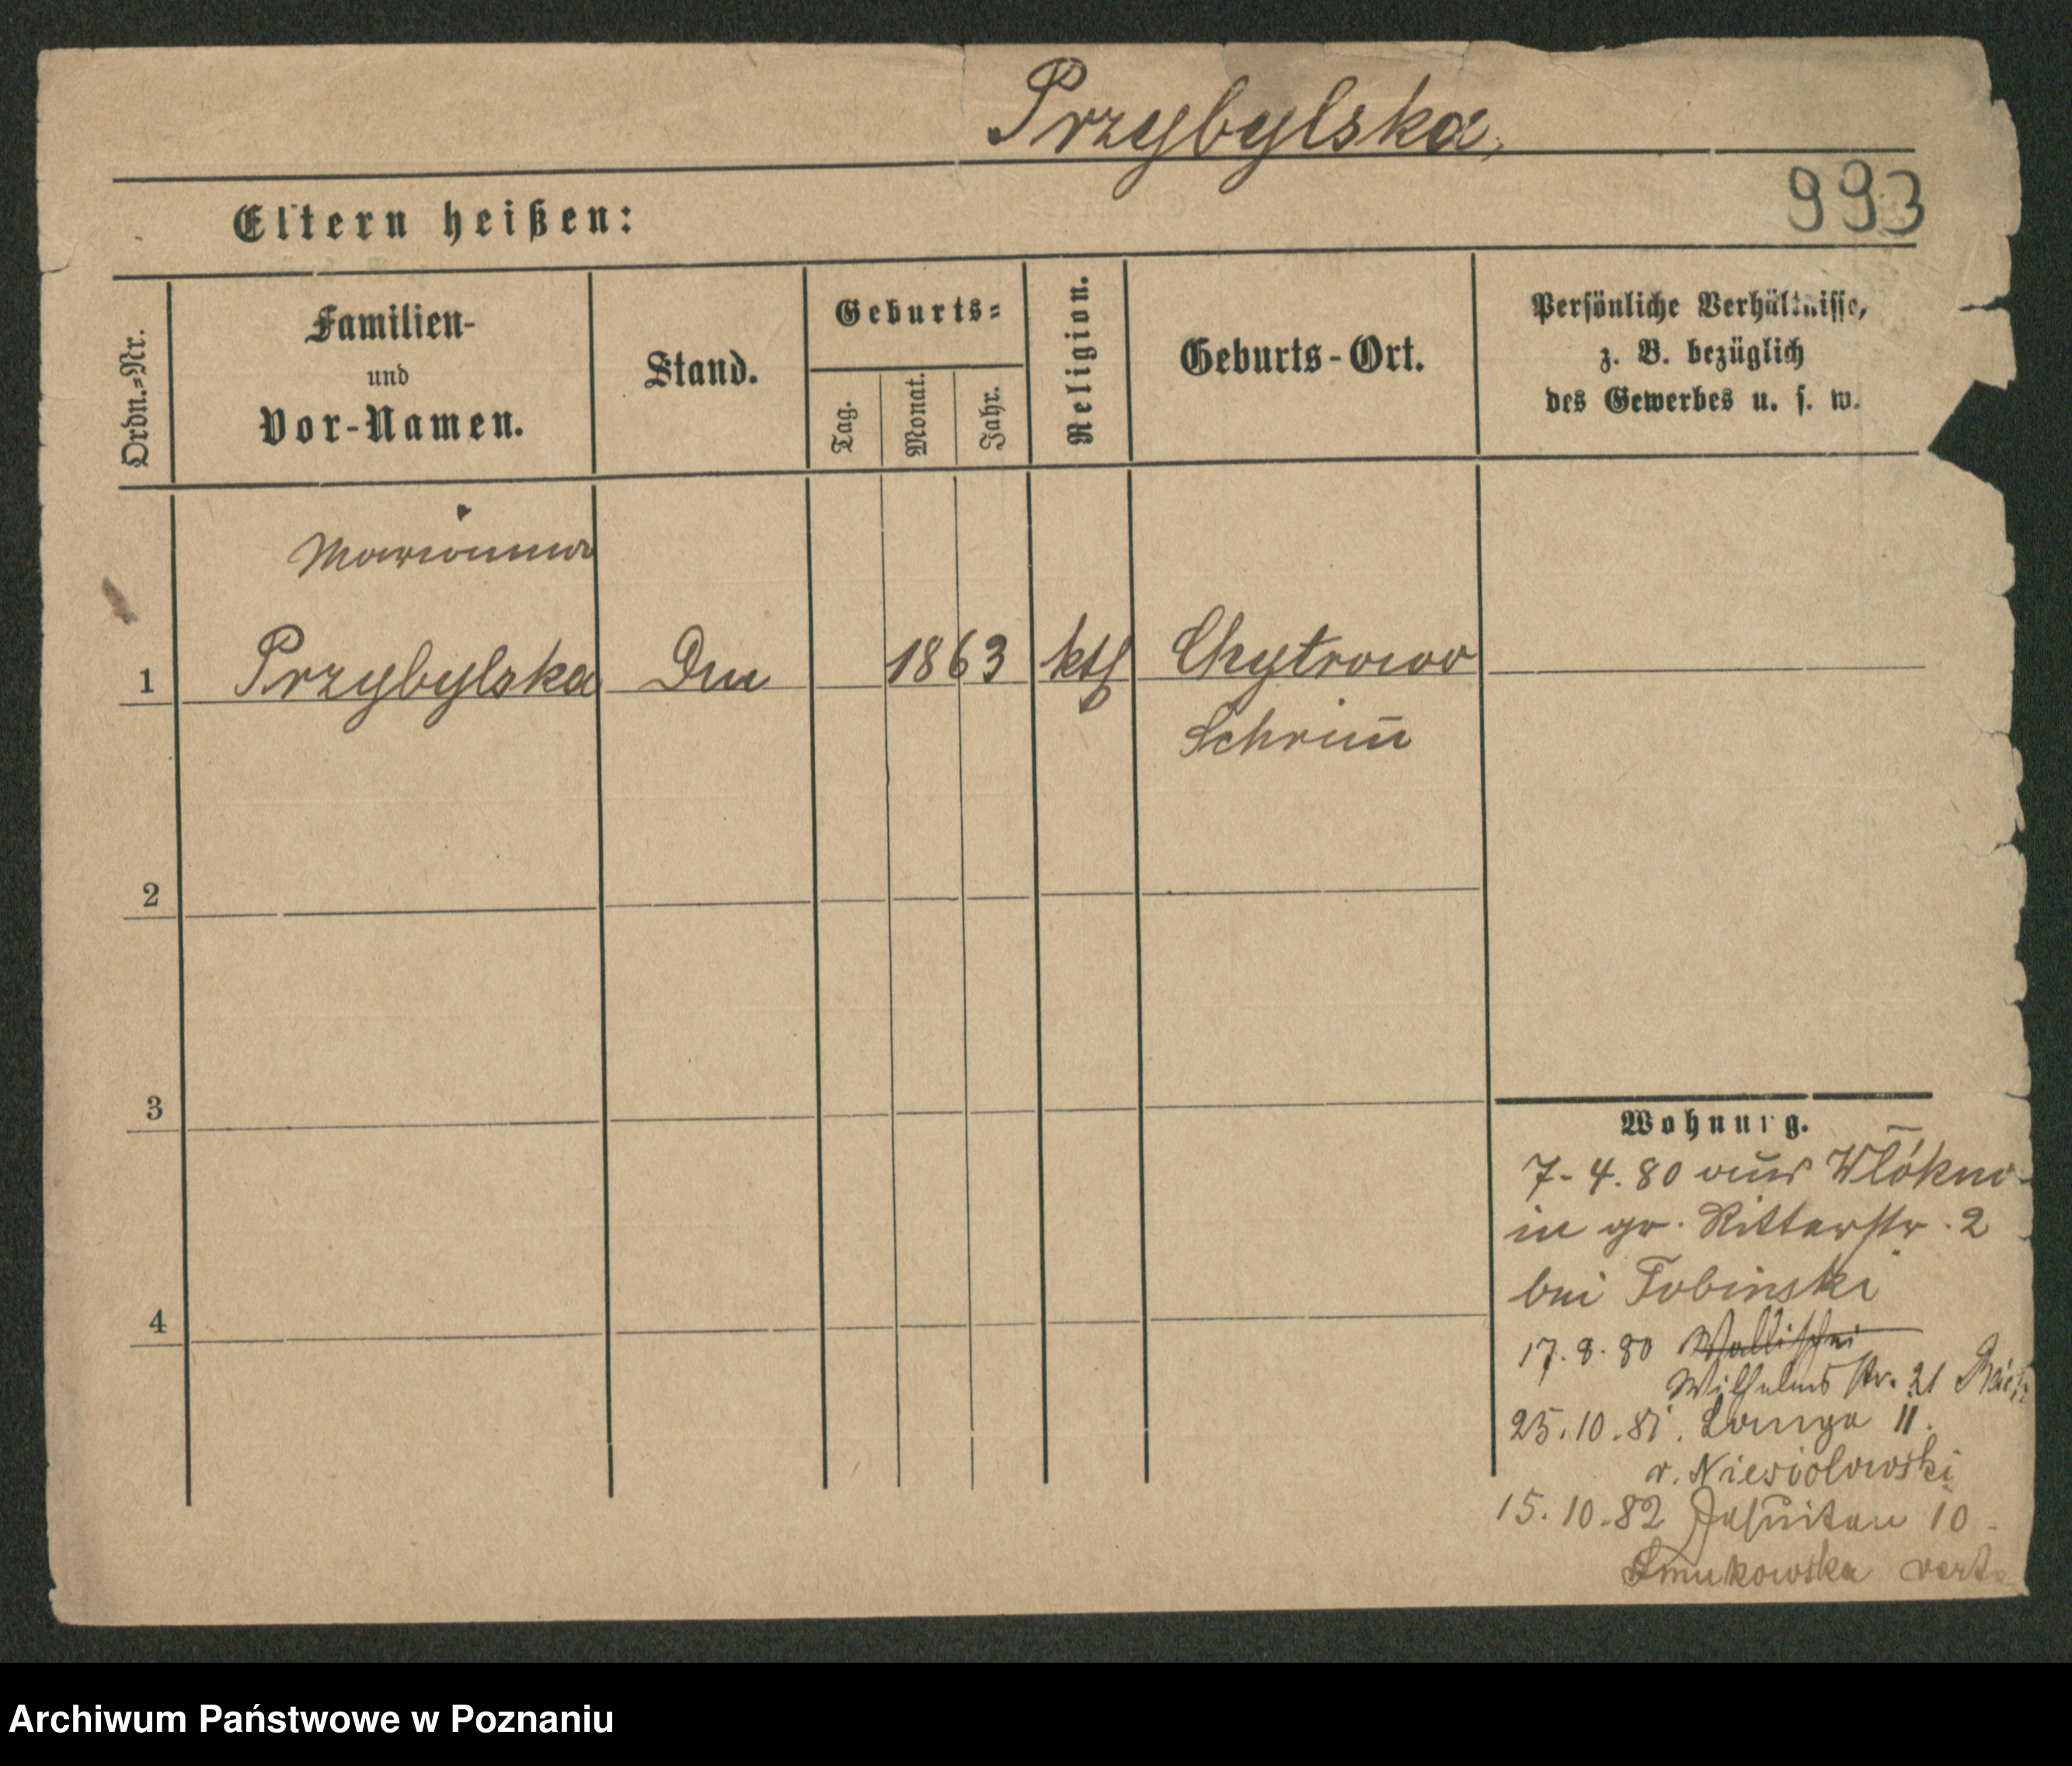 Przybylska,
993
Eltern heißen:
Ordn.=Nr.
Familien-
und
Vor-Namen.
Stand.
Geburts=
Tag.
Monat.
Jahr.
Religion.
Geburts-Ort.
Persönliche Verhältnisse,
z. B. bezüglich
des Gewerbes u. s. w.
Marianna
1 Przybylska 1863 kth Chytrowo
Schrim̄
2
3
4
Wohnung.
7-4.80 aus Wlókno
in gr. Ritterstr. 2
bei Tobinski
17.8.80 Wallischei
Wilhelmsstr. 21
25.10.81. Lange 11.
v. Niesiolowski
15.10.82 Jesuiten 10
Archiwum Państwowe w Poznaniu